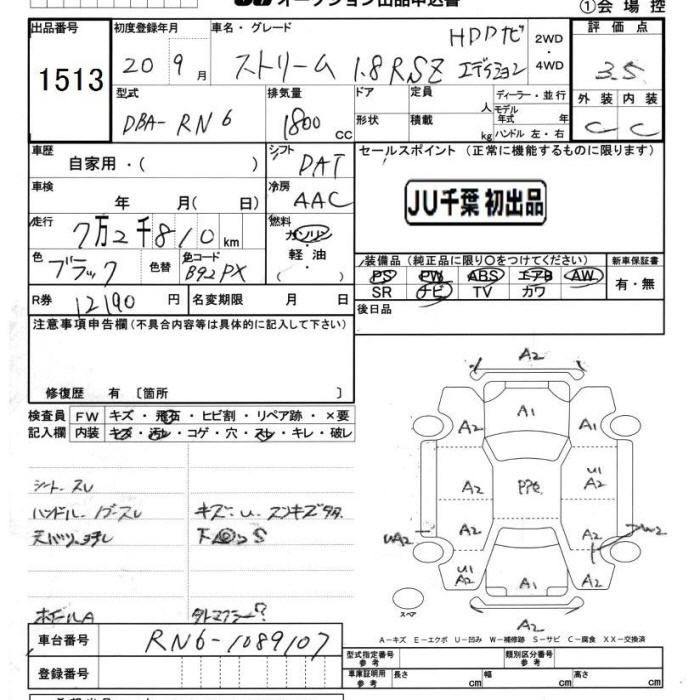 オークション出品申込書
①会場控
出品番号 初度登録年月 車名・グレード 評価点
1513 20 9月 ストリーム 1.8RSZ エディション HDDナビ 2WD・4WD 3.5
型式 排気量 ドア 定員 人 ディーラー・並行 外装 内装
DBA-RN6 1800cc 形状 積載 kg モデル年式 年 ハンドル 左・右 C C
車歴 シフト セールスポイント (正常に機能するものに限ります)
自家用・( ) DAT
車検 冷房 JU千葉 初出品
年 月( 日) AAC
走行 燃料
7万2千810km ガソリン・軽油・( )
色 色替 色コード 装備品 (純正品に限り〇をつけてください) 新車保証書
ブラック B92PX PS PW ABS エアB AW 有・無
SR ナビ TV カワ
R券 12190円 名変期限 月 日 後日品
注意事項申告欄 (不具合内容等は具体的に記入して下さい)
修復歴 有 〔箇所 〕
検査員 FW キズ・飛石・ヒビ割・リペア跡・×要
記入欄 内装 キズ・汚レ・コゲ・穴・スレ・キレ・破レ
シート スレ
ハンドル
キズ・U
A2
A2 A1 A2
A2 U1 A2
A2 A2 W2
UA2
U1 A2 A1 A2
A2
スペア
A-キズ E-エクボ U-凹み W-補修跡 S-サビ C-腐食 XX-交換済
車台番号 RN6-1089107
型式指定番号 参考 類別区分番号 参考
登録番号
車庫証明用 参考 長さ cm 幅 cm 高さ cm